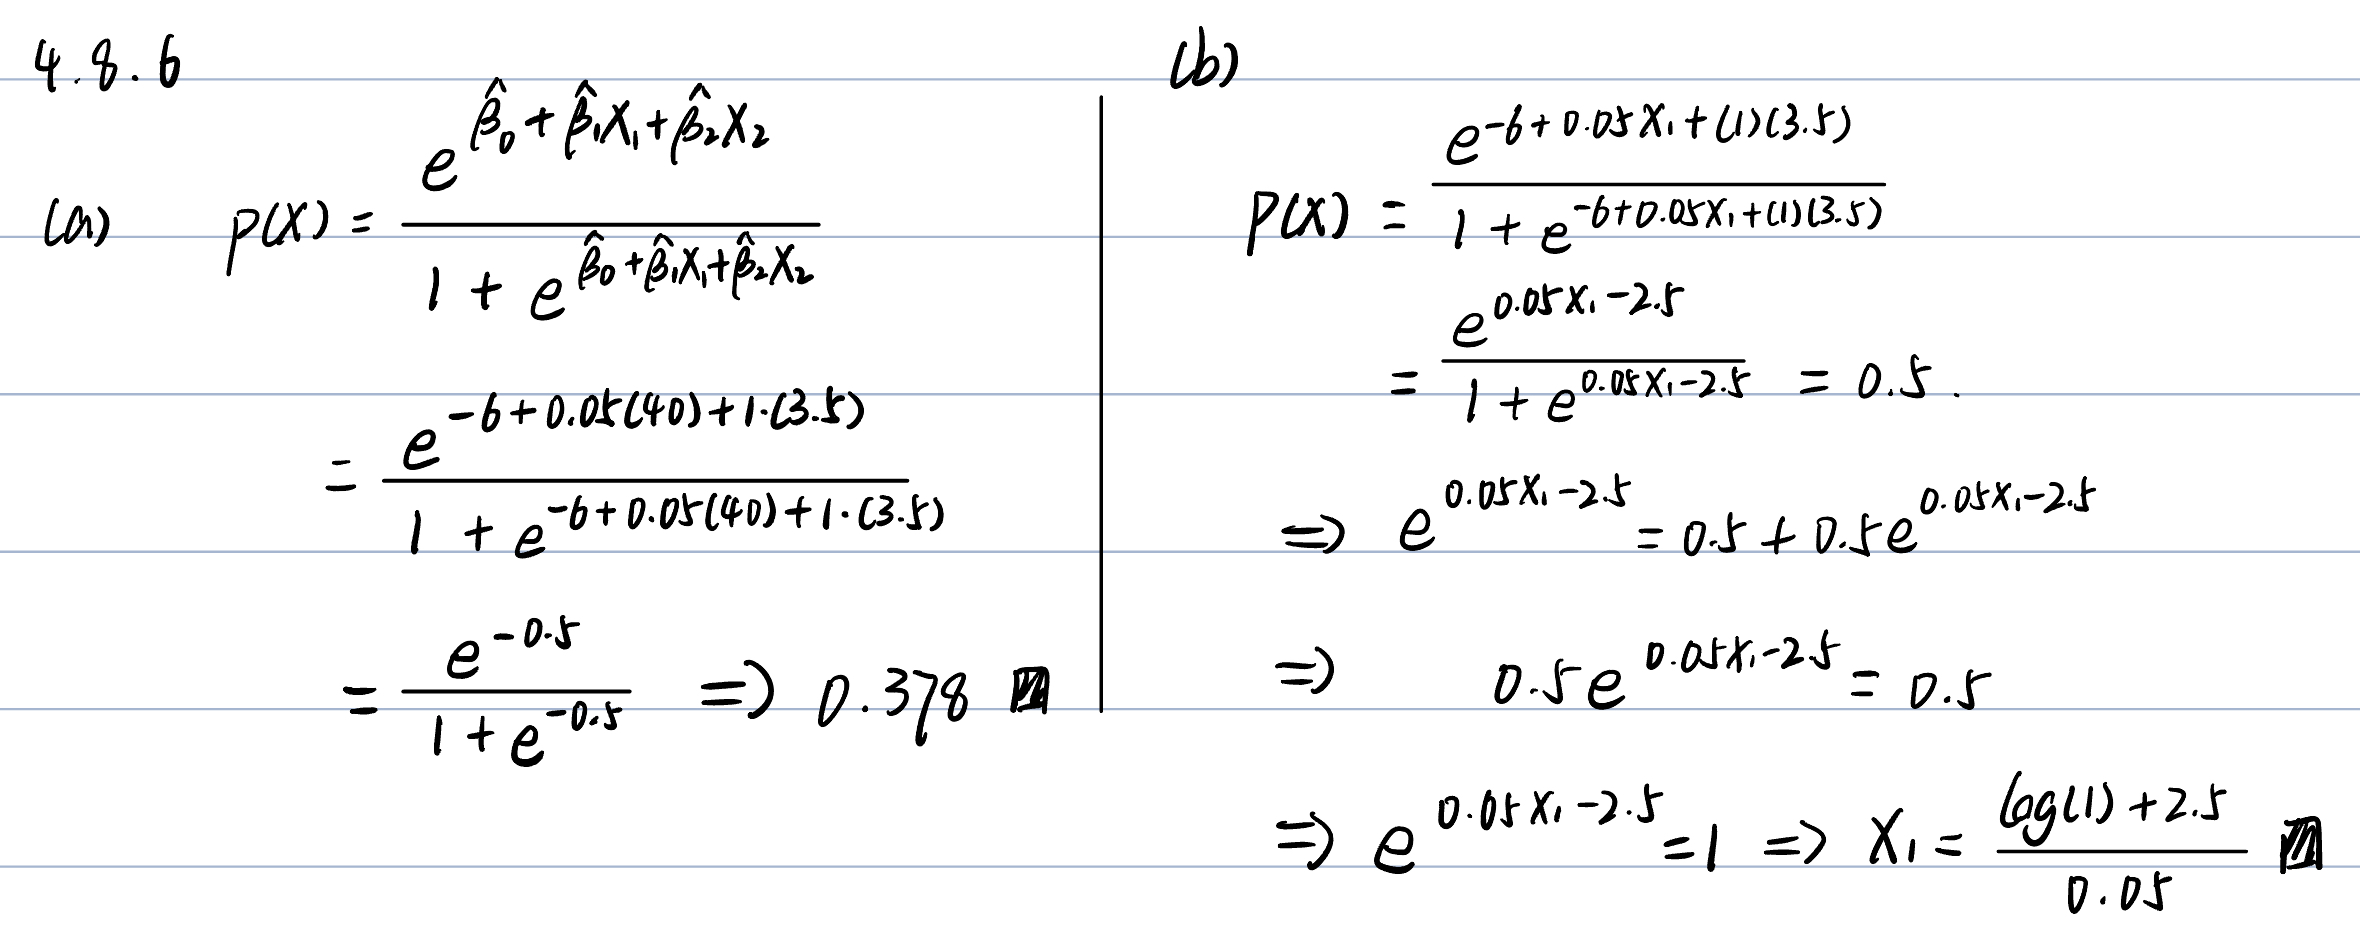 4.8.6
(a) p(X) = e^{β̂₀ + β̂₁X₁ + β̂₂X₂} / (1 + e^{β̂₀ + β̂₁X₁ + β̂₂X₂})
= e^{-6 + 0.05(40) + 1·(3.5)} / (1 + e^{-6 + 0.05(40) + 1·(3.5)})
= e^{-0.5} / (1 + e^{-0.5}) ⇒ 0.378
(b)
p(X) = e^{-6 + 0.05X₁ + (1)(3.5)} / (1 + e^{-6 + 0.05X₁ + (1)(3.5)})
= e^{0.05X₁ - 2.5} / (1 + e^{0.05X₁ - 2.5}) = 0.5.
⇒ e^{0.05X₁ - 2.5} = 0.5 + 0.5e^{0.05X₁ - 2.5}
⇒ 0.5e^{0.05X₁ - 2.5} = 0.5
⇒ e^{0.05X₁ - 2.5} = 1 ⇒ X₁ = (log(1) + 2.5) / 0.05